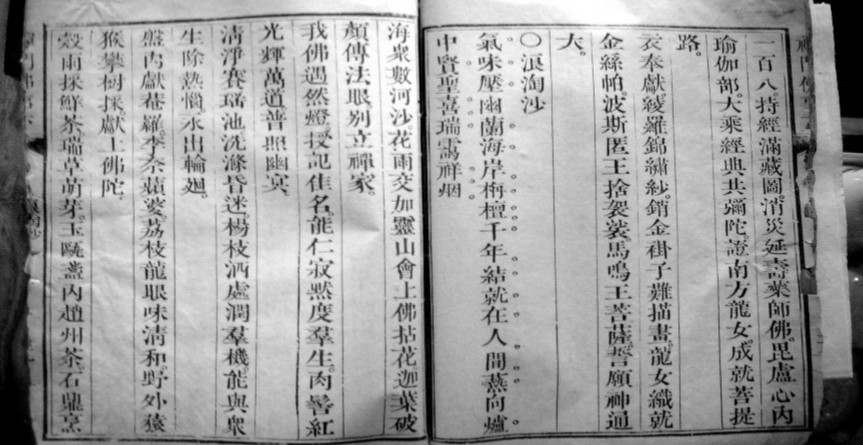 一百八持經滿藏圖消災延壽藥師佛毘盧心內
瑜伽部大乘經典共彌陀證南方龍女成就菩提
路
衣奉獻綾羅錦繡紗銷金褂子難描畫龍女織就
金絲帕波斯匿王捨袈裟馬鳴王菩薩誓願神通
大
○浪淘沙
氣味壓幽蘭海岸栴檀千年結就在人間爇向爐
中賢聖喜瑞靄祥烟
海衆數河沙花雨交加靈山會上佛拈花迦葉破
顏傳法眼別立禪家
我佛遇然燈授記佳名能仁寂默度羣生肉髻紅
光輝萬道普照幽冥
清淨賽瑤池沈滌昏迷楊枝洒處潤羣機能與衆
生除熱惱永出輪迴
盤內獻菴羅李柰蘋婆荔枝龍眼味清和野外猿
猴攀樹採獻上佛陀
穀雨採鮮茶瑞草萌芽玉甌盞內趙州茶石鼎烹
浪淘沙